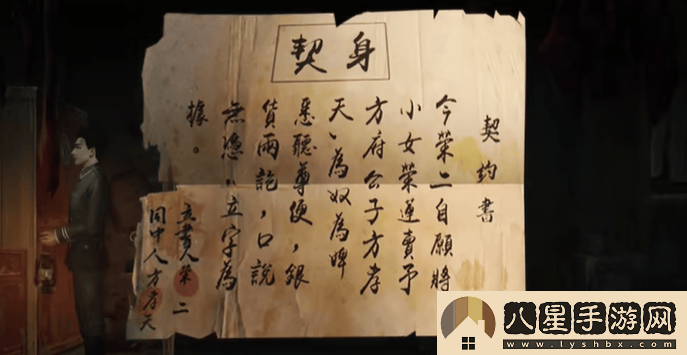 身契
契约書
今榮二自願將
小女榮蓮賣予
方府公子方孝
天、為奴為婢
悉聽尊便，銀
貨兩訖，口說
無憑，立字為
據。
立書人榮二
同中人方孝天
八星手游网
www.lyshbx.com